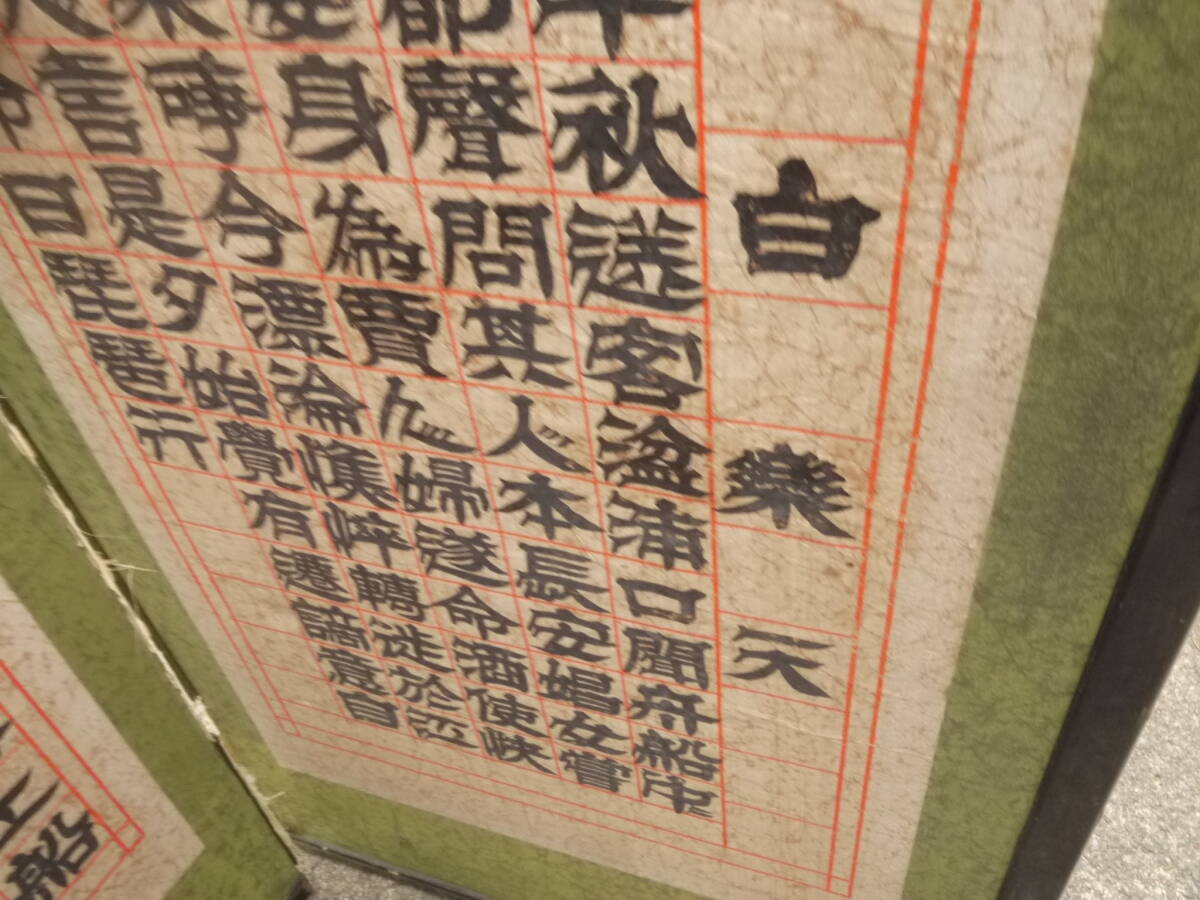 白樂天
年秋送客湓浦口聞舟船中
都聲問其人本長安娼女嘗
委身為賈人婦遂命酒使快
時今漂淪憔悴轉徙於江
人言是夕始覺有遷謫意自
命曰琵琶行
上船